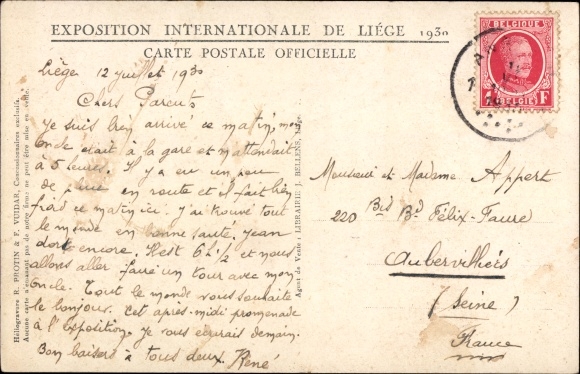 EXPOSITION INTERNATIONALE DE LIÉGE 1930
CARTE POSTALE OFFICIELLE
BELGIQUE
1F F
BELGIË
Liége 12 juillet 1930
Chers Parents
Je suis bien arrivé ce matin, mon
Oncle était à la gare et m'attendait
à 5 heures. Il y a eu un peu
de pluie en route et il fait bien
froid ce matin ici. J'ai trouvé tout
le monde en bonne santé, Jean
dort encore. Il est 6 h ½ et nous
allons aller faire un tour avec mon
Oncle. Tout le monde vous souhaite
le bonjour. Cet après-midi promenade
à l'Exposition. Je vous écrirais demain.
Bon baisers à tous deux. René
Monsieur et Madame Appert
220 Bis Bd Félix-Faure
Aubervilliers
(Seine)
France
Héliogravure R. PROTIN & F. VUIDAR, Concessionnaires exclusifs.
Aucune carte n'émanant pas de notre firme ne peut être mise en vente.
Agent de Vente : LIBRAIRIE J. BELLENS, Liége.